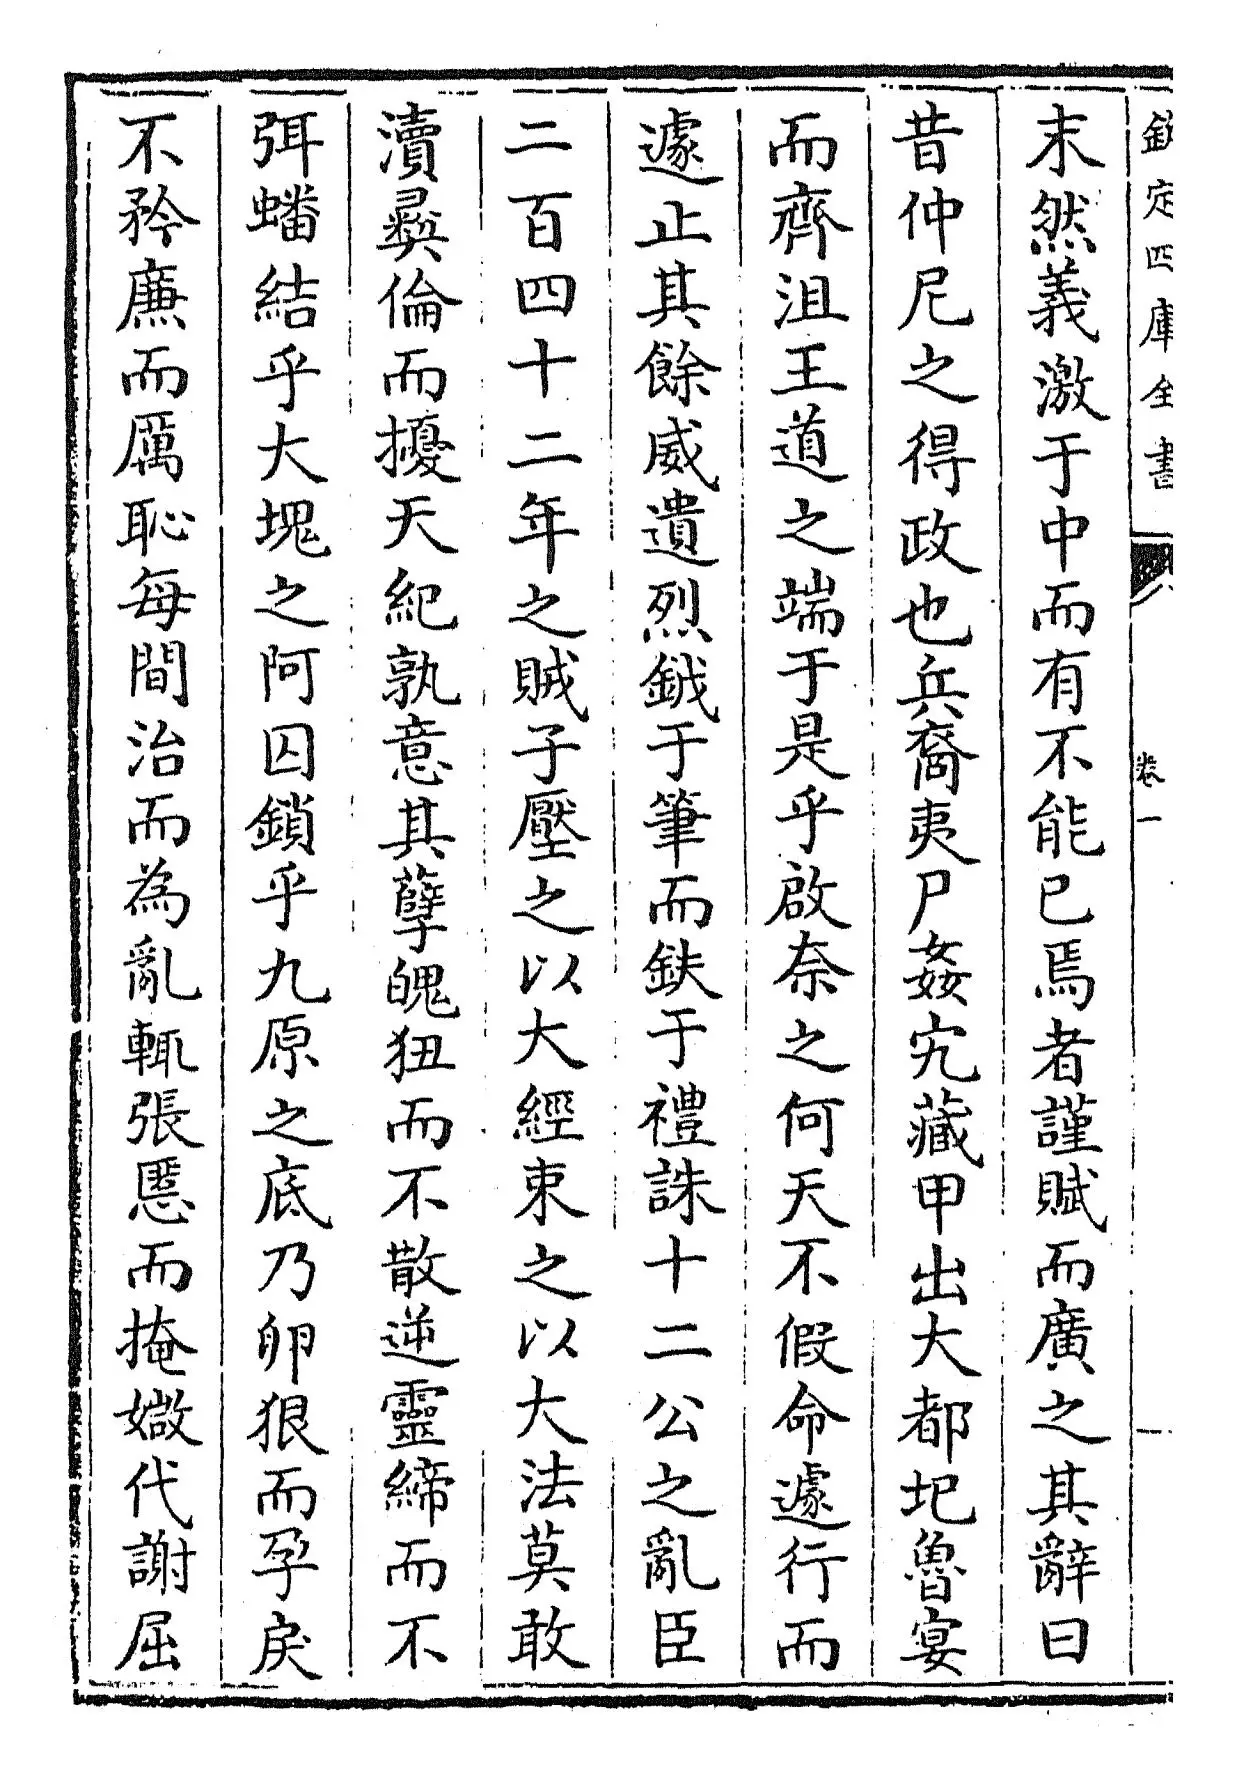 欽定四庫全書
卷一
末然義激于中而有不能已焉者謹賦而廣之其辭曰
昔仲尼之得政也兵裔夷尸姦宄藏甲出大都圮魯宴
而齊沮王道之端于是乎啟奈之何天不假命遽行而
遽止其餘威遺烈鉞于筆而鈇于禮誅十二公之亂臣
二百四十二年之賊子壓之以大經束之以大法莫敢
瀆彝倫而擾天紀孰意其孽魄狃而不散逆靈締而不
弭蟠結乎大塊之阿囚鎖乎九原之底乃卵狠而孕戾
不矜廉而厲恥每間治而為亂輒張慝而掩媺代謝屈